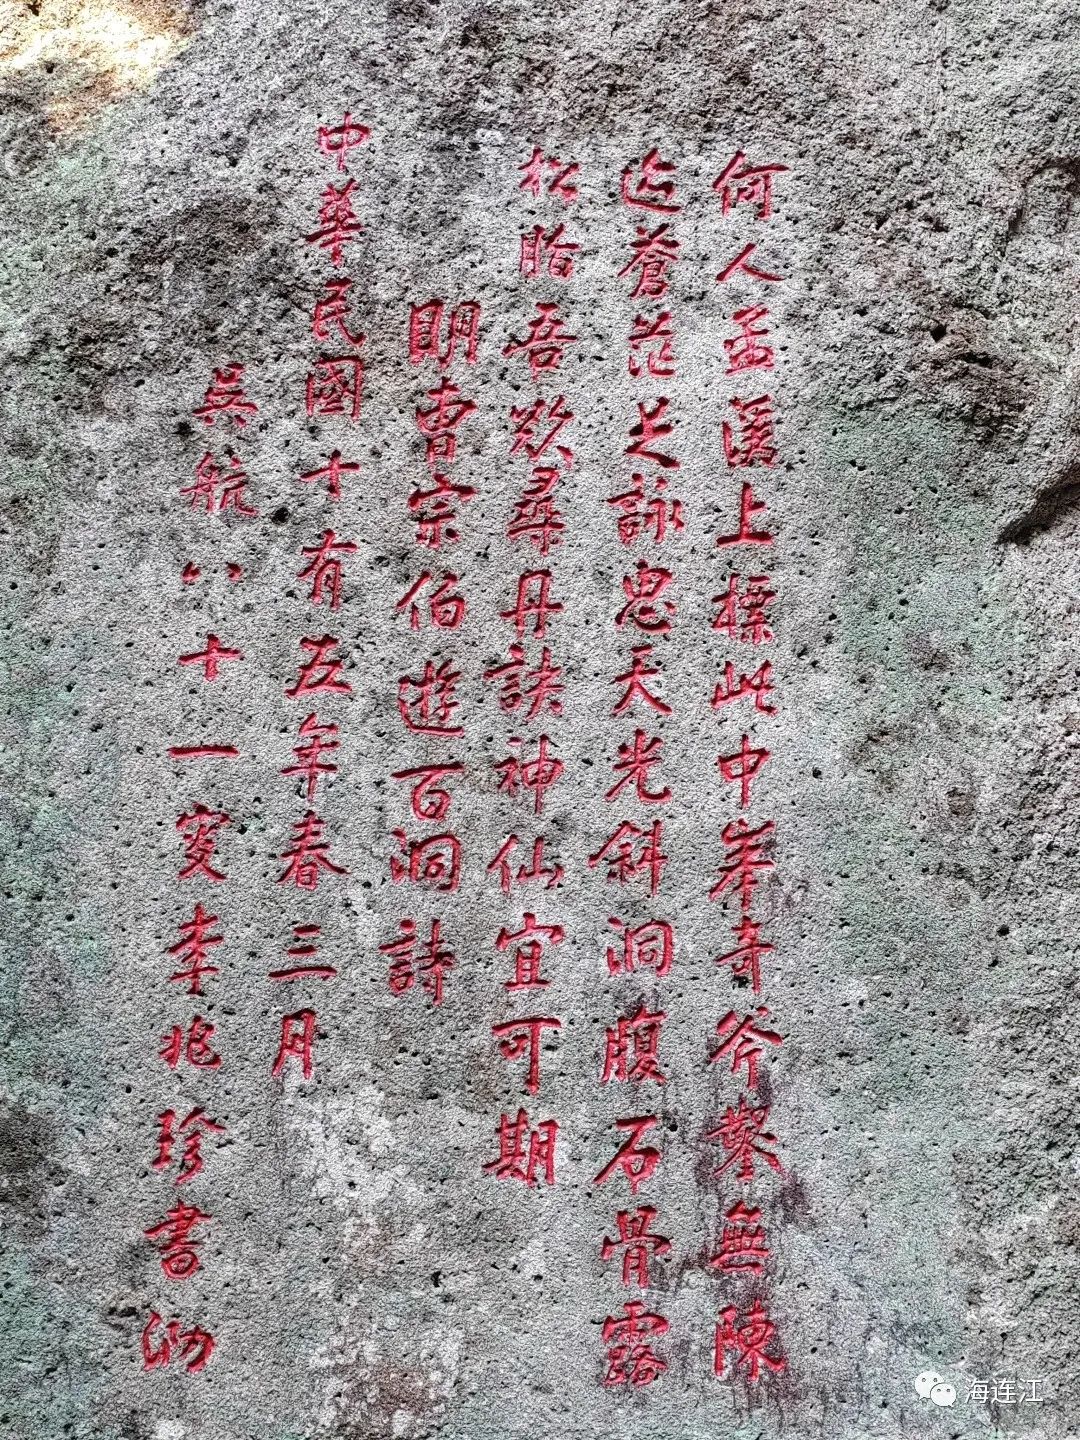 何人孟溪上標此中峯奇斧鑿無陳
迹蒼茫足詠思天光斜洞腹石骨露
松脂吾欲尋丹訣神仙宜可期
明曹宗伯遊百洞詩
中華民國十有五年春三月
吳航八十一叟李兆珍書泐
海连江